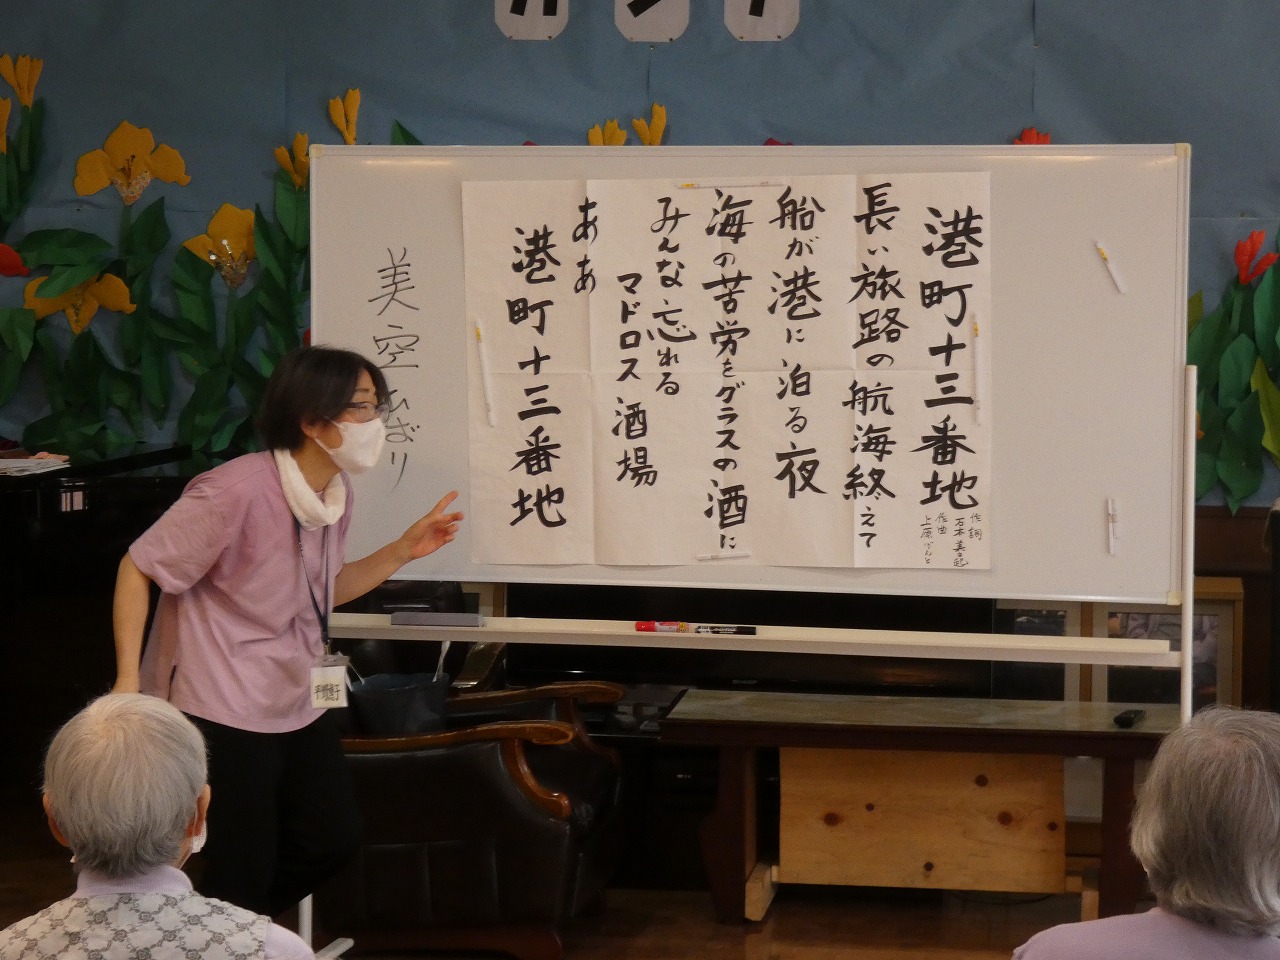 港町十三番地
作詞
石本美由起
作曲
上原げんと
長い旅路の航海終えて
船が港に泊る夜
海の苦労をグラスの酒に
みんな忘れる
マドロス酒場
ああ
港町十三番地
美空ひばり